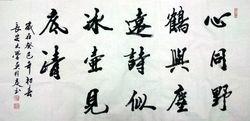 心同野
鶴與塵
遠詩似
冰壺見
底清
歲在癸巳年初春
長安大學吳行之書